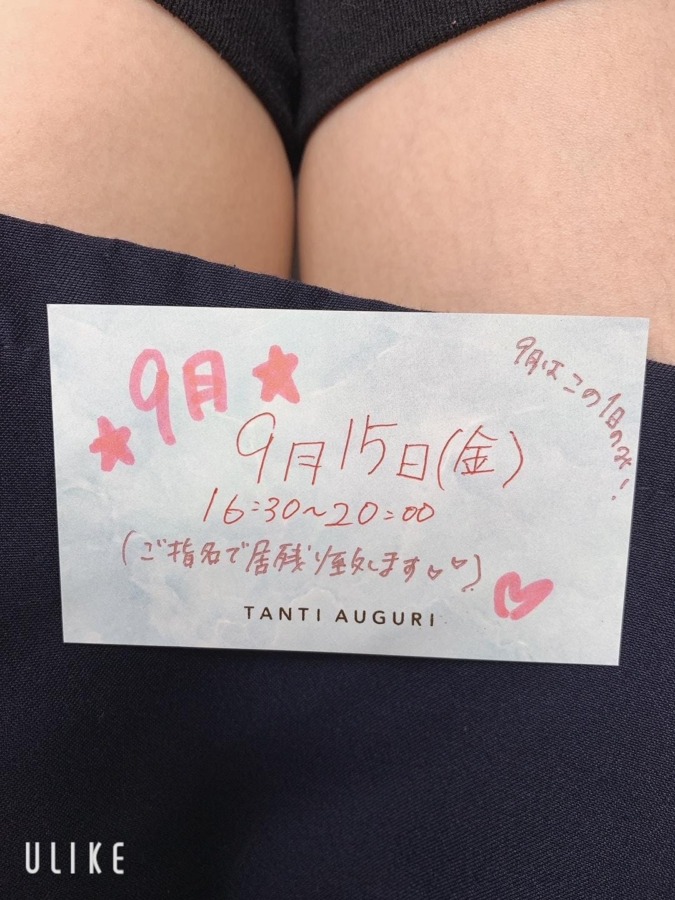 9月
9月はこの1日のみ!
9月15日(金)
16:30~20:00
(ご指名で居残り致します♡♡)
TANTI AUGURI
ULIKE